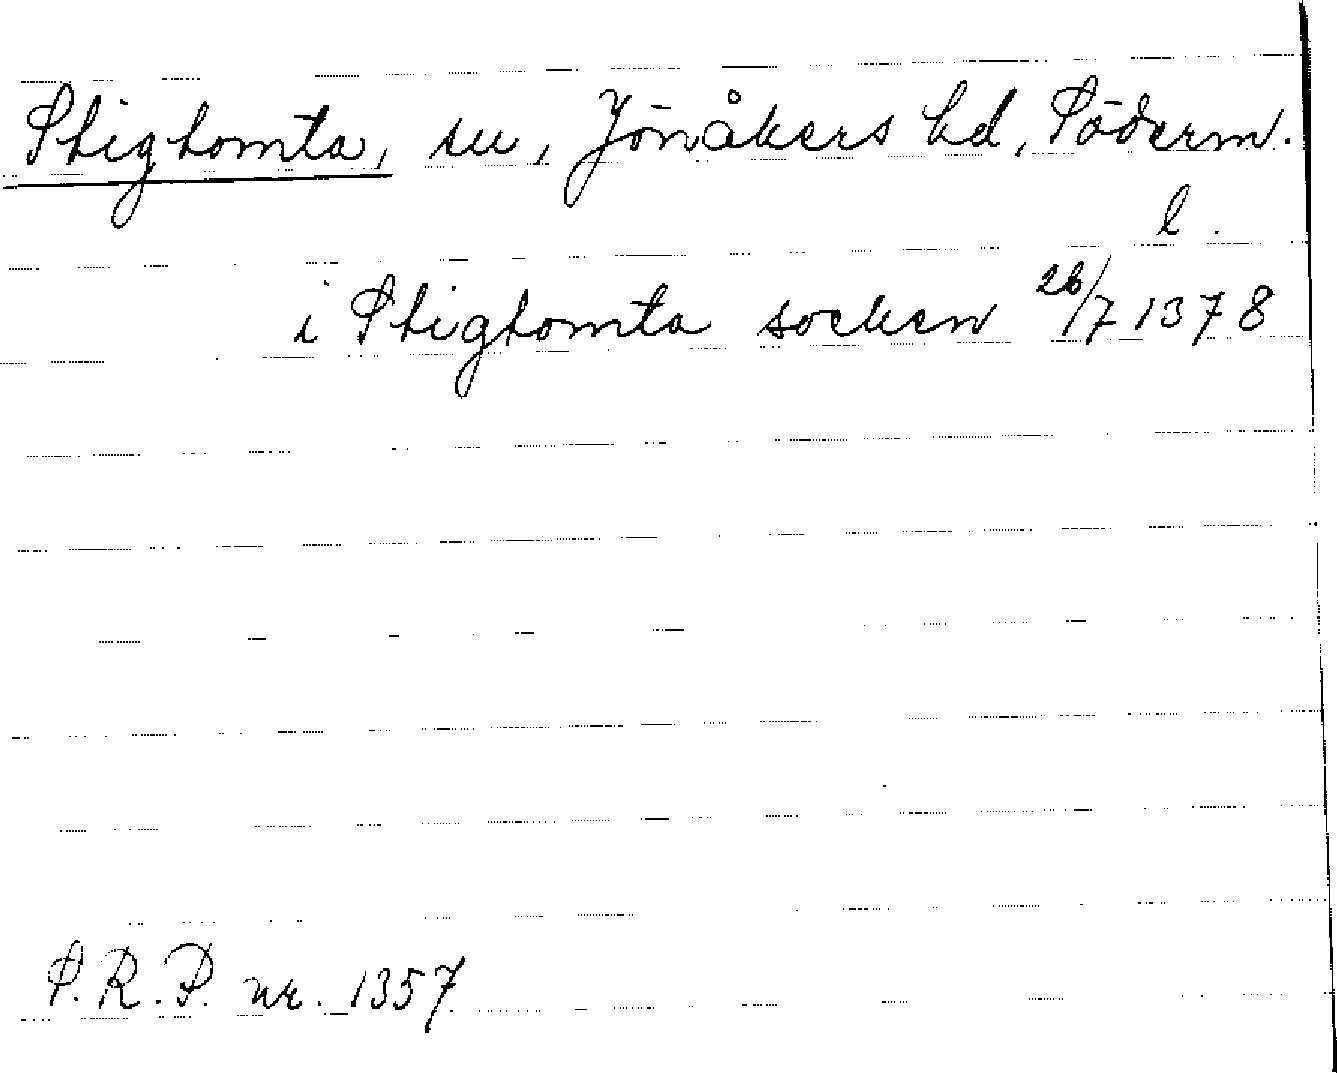 Stigtomta, sn, Jönåkers hd, Söderm.
l.
i Stigtomta socken 26/7 1378
S.R.P. nr. 1357